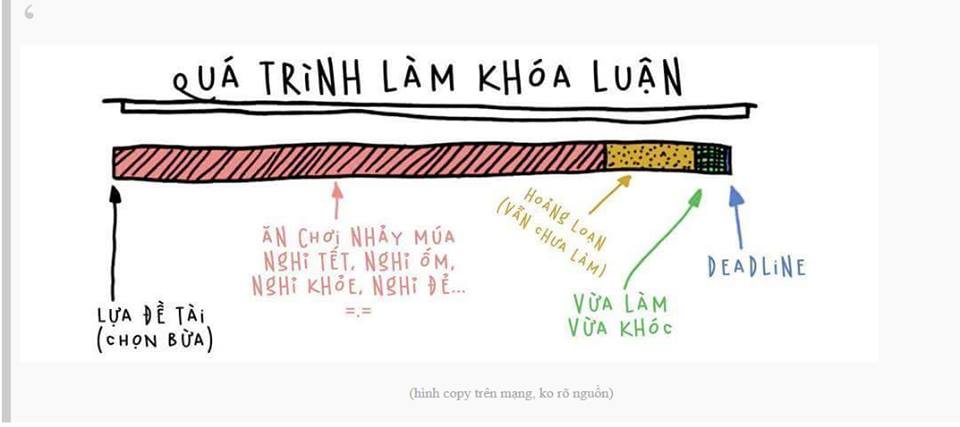 QUÁ TRÌNH LÀM KHÓA LUẬN
LỰA ĐỀ TÀI
(CHỌN BỪA)
ĂN CHƠI NHẢY MÚA
NGHỈ TẾT, NGHỈ ỐM,
NGHỈ KHỎE, NGHỈ ĐẺ...
=.=
HOẢNG LOẠN
(VẪN CHƯA LÀM)
VỪA LÀM
VỪA KHÓC
DEADLINE
(hình copy trên mạng, ko rõ nguồn)